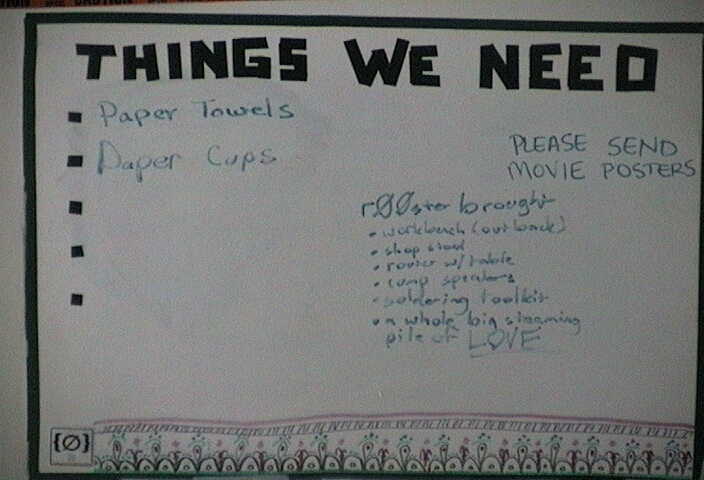 THINGS WE NEED
Paper Towels
Paper Cups
PLEASE SEND
MOVIE POSTERS
rØØster brought
• workbench (out back)
• shop stool
• router w/ table
• comp speakers
• soldering toolkit
• a whole big steaming
pile of LOVE
{Ø}